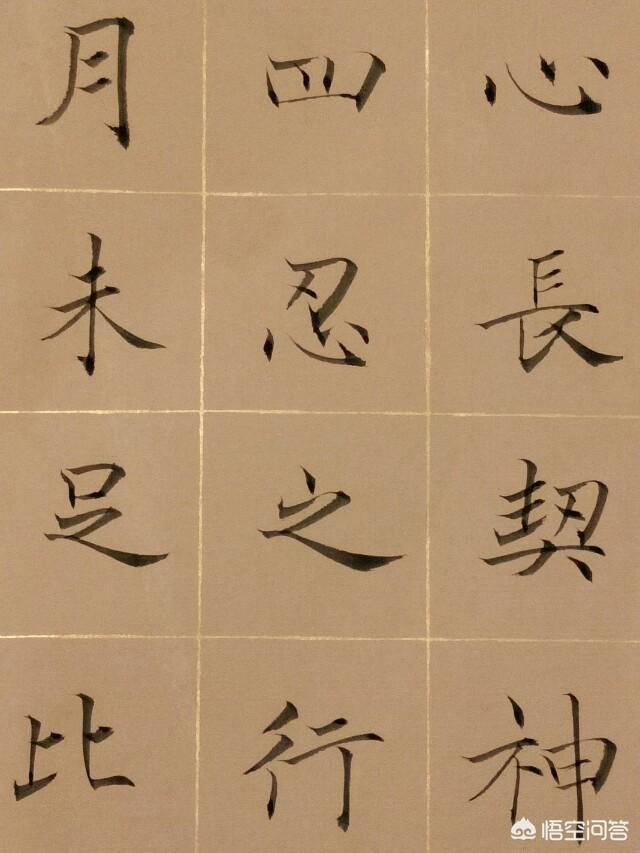 心長契神
四忍之行
月未足比
悟空问答